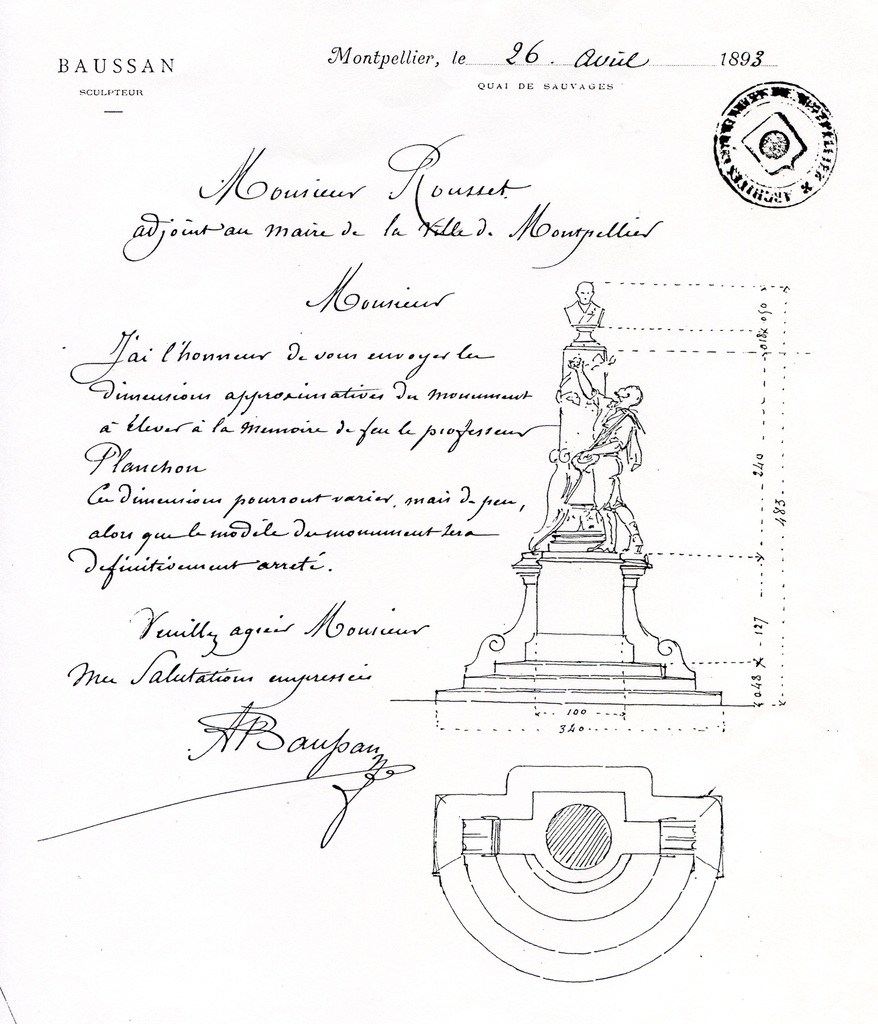 BAUSSAN
SCULPTEUR
Montpellier, le 26. avril 1893
QUAI DE SAUVAGES
Monsieur Rousset
adjoint au maire de la Ville de Montpellier
Monsieur
J'ai l'honneur de vous envoyer les
dimensions approximatives du monument
à élever à la memoire de feu le professeur
Planchon
Ces dimensions pourront varier, mais de peu,
alors que le modèle du monument sera
definitivement arreté.
Veuillez agréer Monsieur
mes Salutations empressées
ABaussan
050
018
240
483
127
048
100
340
ARCHIVES DE MONTPELLIER